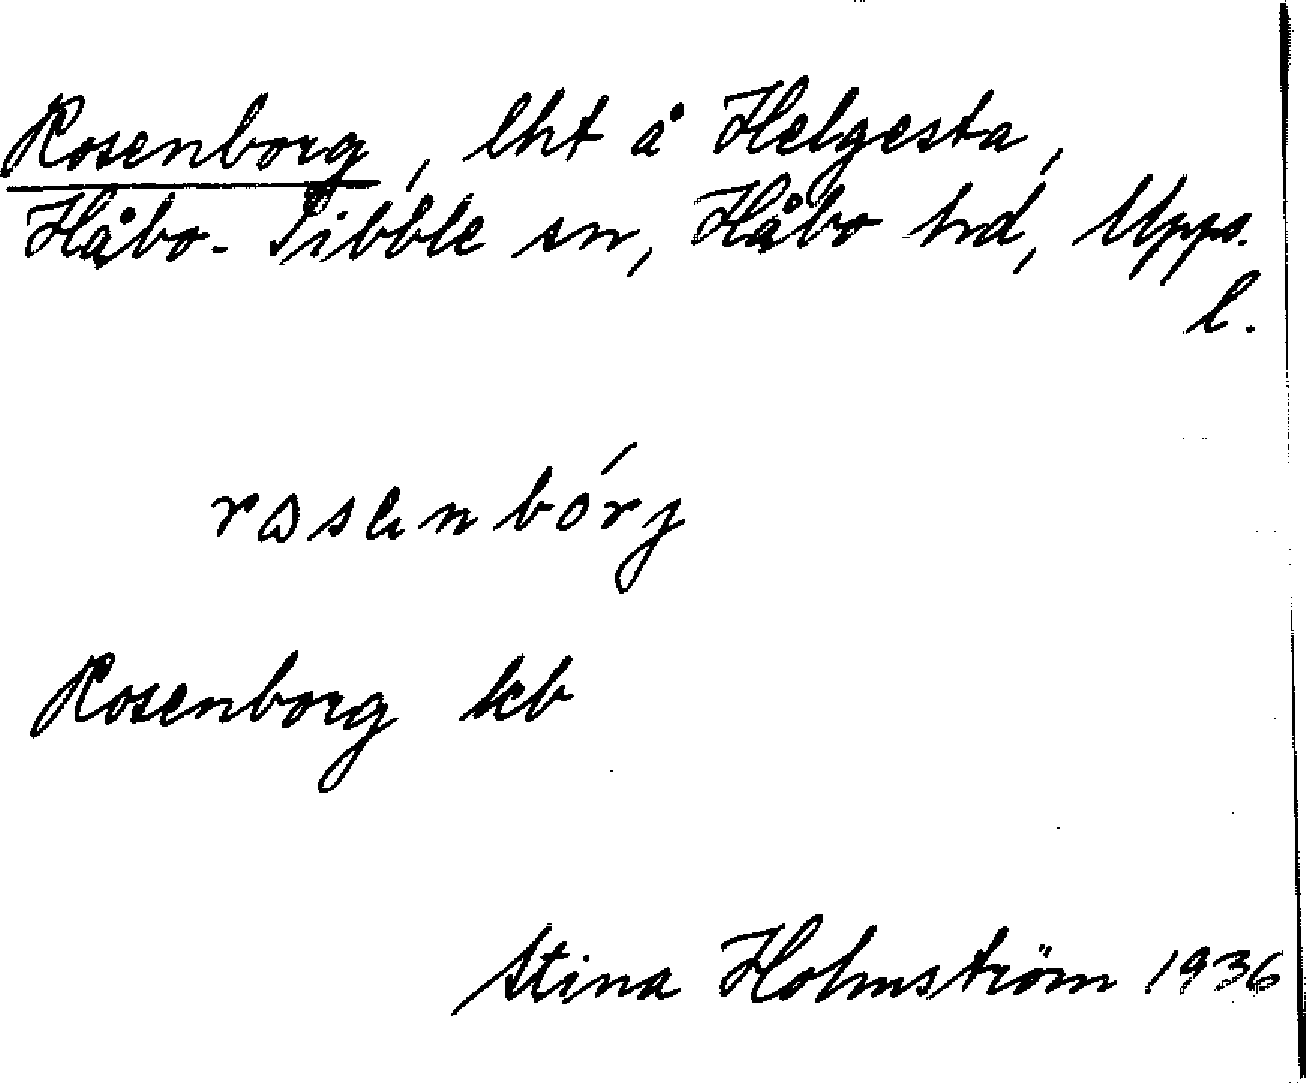 Rosenborg, lht å Helgesta,
Håbo-Tibble sn, Håbo hd, Upps.
l.
rosenbórj
Rosenborg kb
Stina Holmström 1936